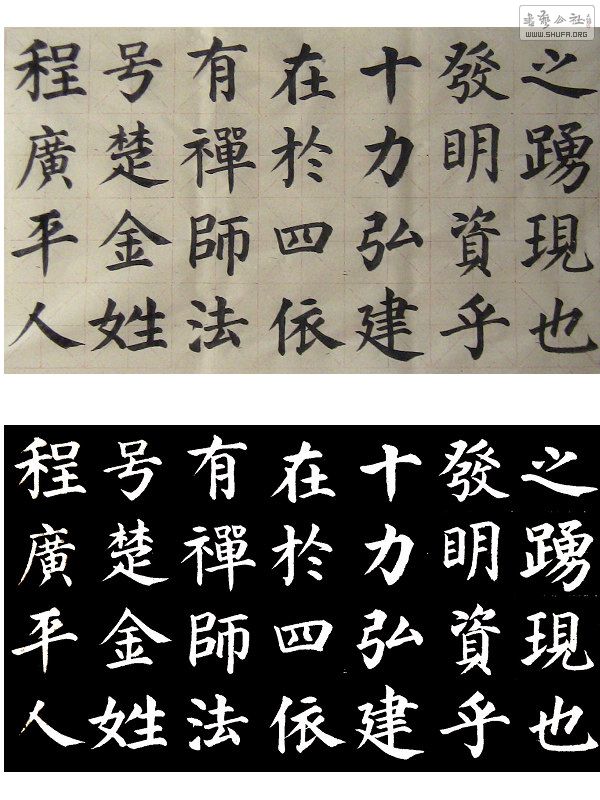 WWW.SHUFA.ORG
之踴現也
發明資乎
十力弘建
在於四依
有禪師法
号楚金姓
程廣平人
之踴現也
發明資乎
十力弘建
在於四依
有禪師法
号楚金姓
程廣平人